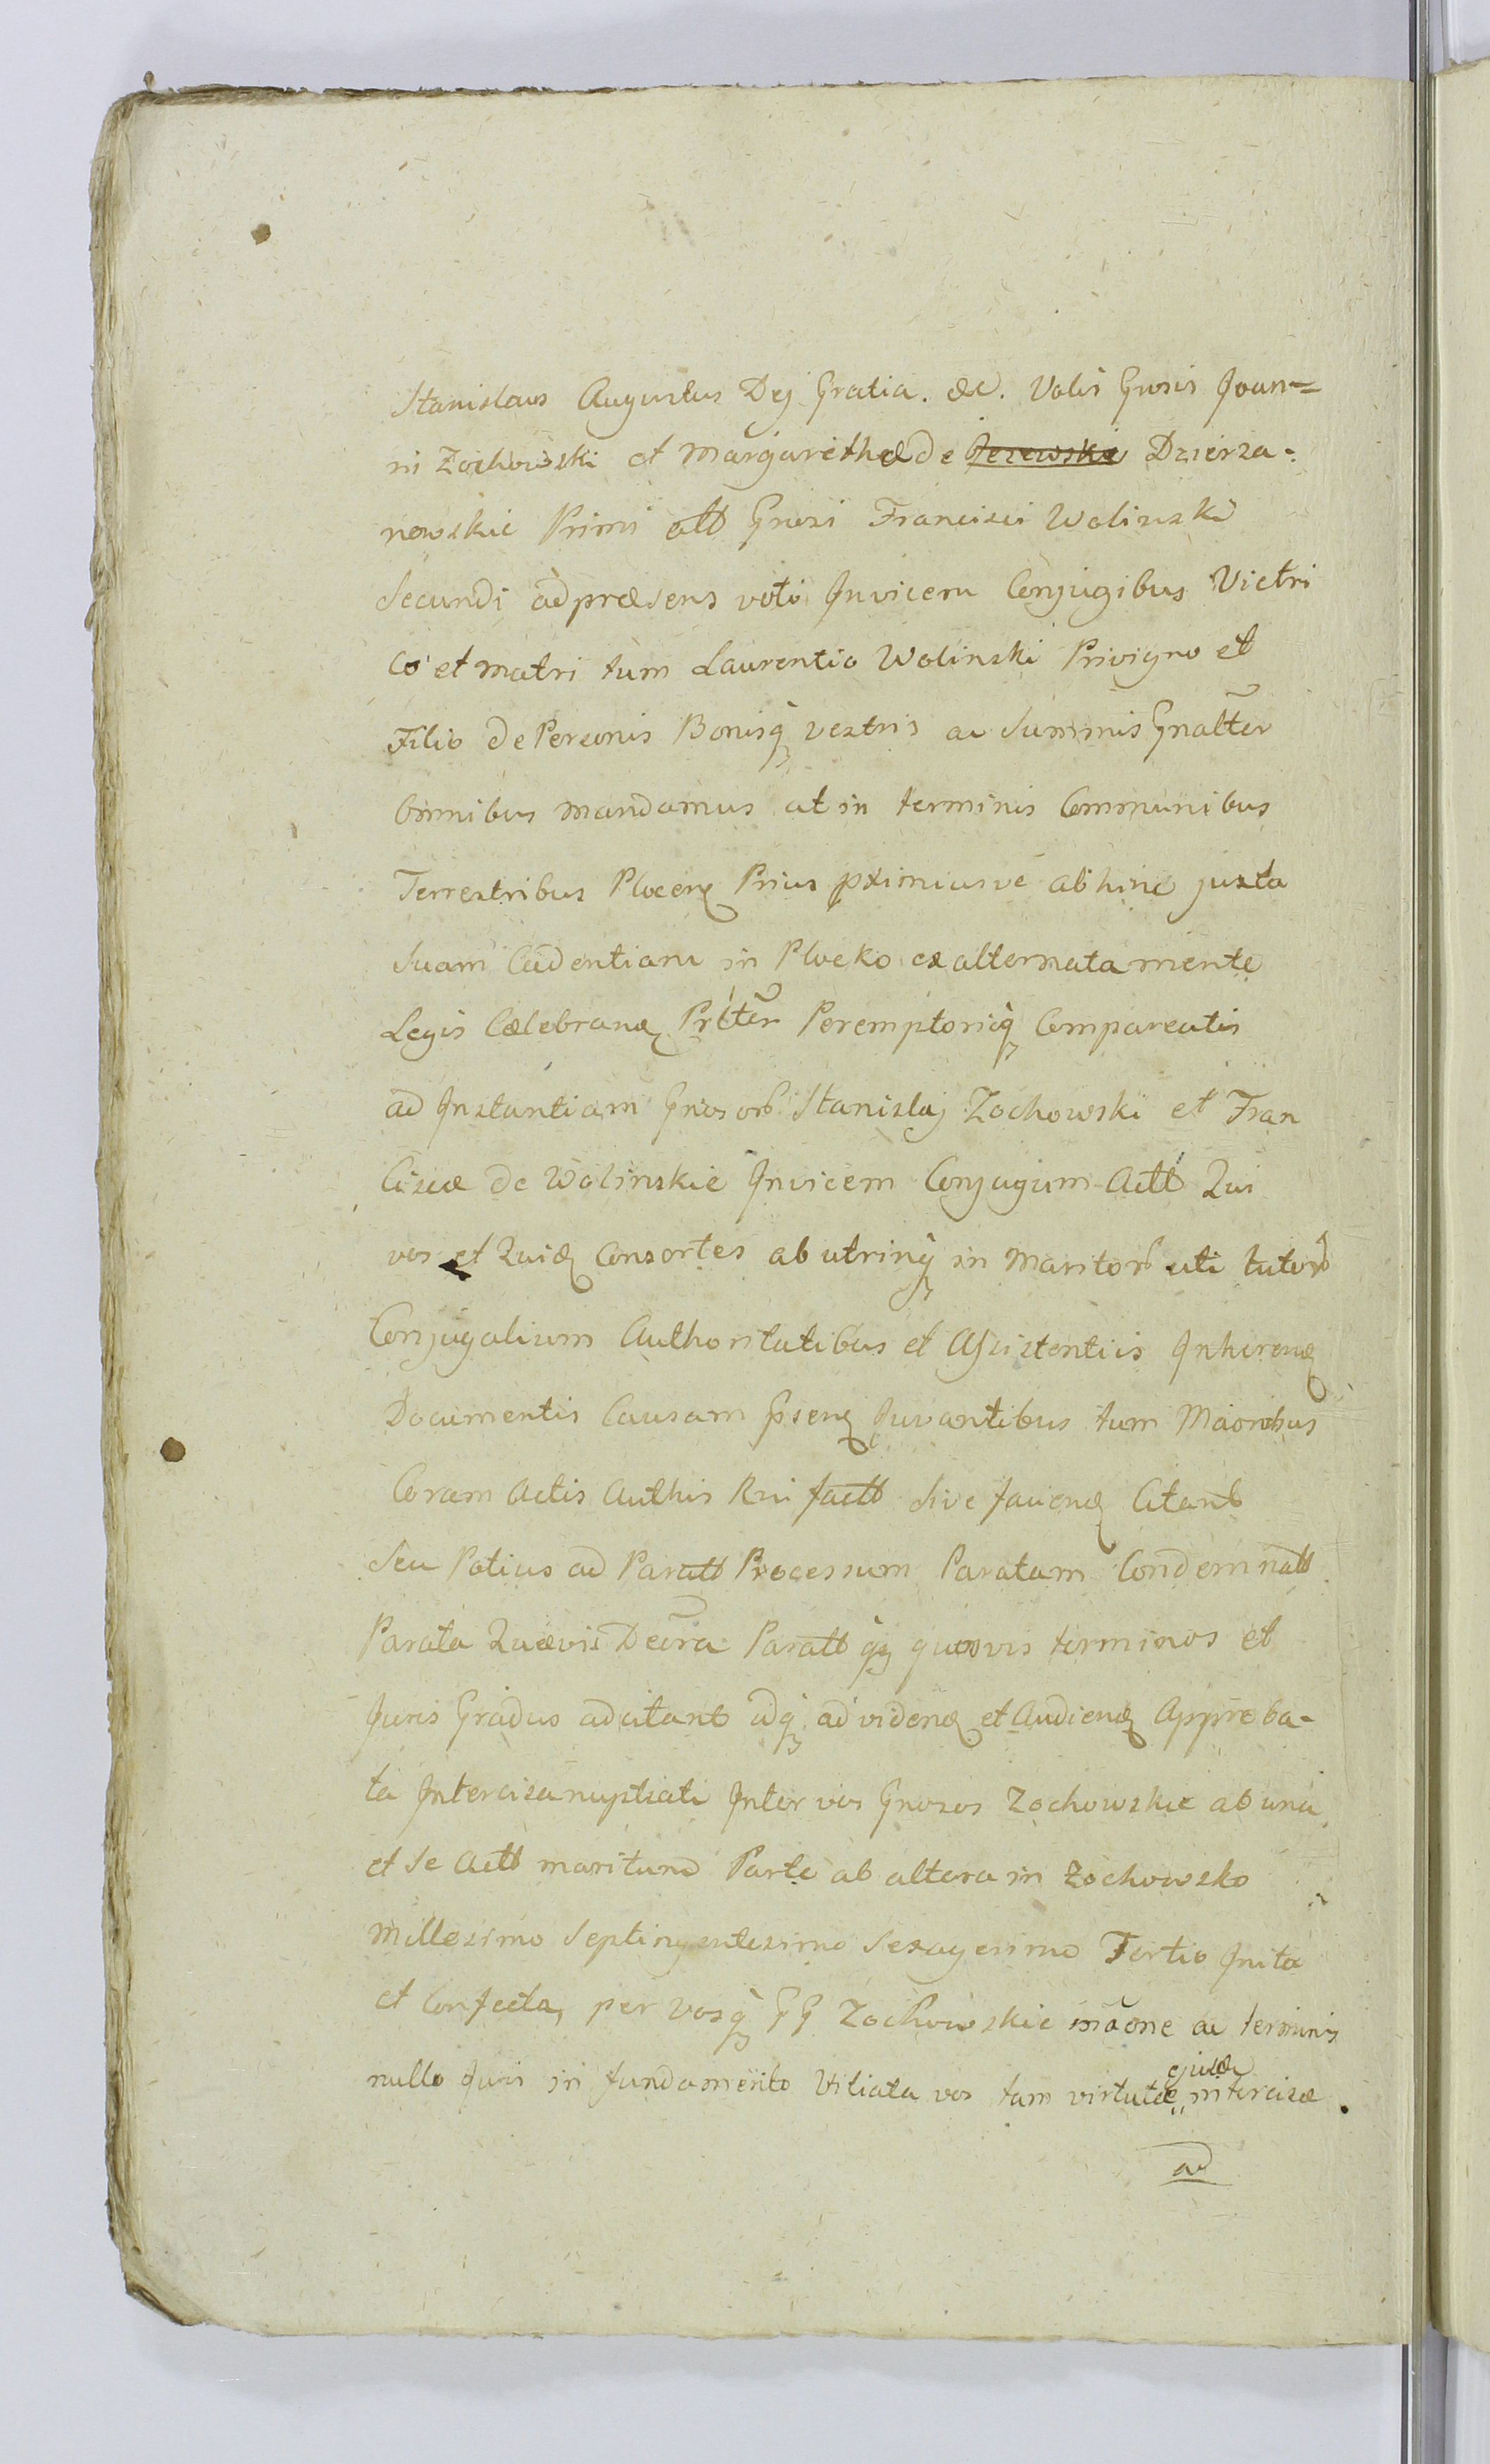 Stanislaus Augustus Dej Gratia. &c. Vobis Gnosis Joan=
ni Zochowski et Margarethæ de Jezewskie Dzierza-
nowskie Primi olto Gnosi Francisci Wolinski
Secundi ad præsens voto Invicem Conjugibus Victri
co et Matri tum Laurentio Wolinski Privigno et
Filio de Personis Bonisq vestris ac Summis Gnalter
omnibus mandamus ut in terminis Communibus
Terrestribus Plocen Prius pximiusve abhinc juxta
Suam Cadentiam in Plocko ex alternata mente
Legis Cælebran Prtter Peremptorieq Compareatis
ad Instantiam Gnosorb Stanislaj Zochowski et Fran
ciscæ de Wolinskie Invicem Conjugum Actt Qui
vos et Quid Consortes ab utrinq in Maritorb uti tutorb
Conjugalium Authoritatibus et Assistentiis Inheren
Documentis Causam psen Juvantibus tum Maioribus
Coram Actis Authis Rni factt sive facien Citant
Seu Potius ad Paratt Processum Paratam Condemnatt
Parata Quævis Decra Paratt qq quosvis terminos et
Juris Gradus adcitant idq ad viden et Audien Approba-
ta Intercisa nuptiali Inter vos Gnosos Zochowskie ab una
et Se Actt maritum Parte ab altera in Zochowsko
Millesimo Septingentesimo Sexagesimo Tertio Inita
et Confecta, per vosq GG Zochowskie ac terminis
nullo Juris in fundamento Vitiata vos tam virtute ejusd intercisæ.
ad